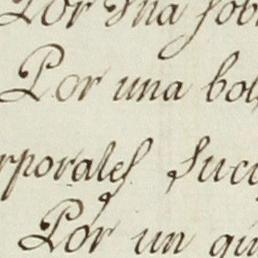 Por una sob
Por una bol
rporales suc
Por un qu